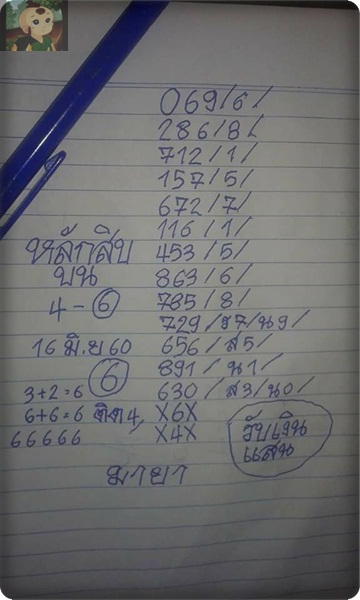 069/6/
286/8/
712/1/
157/5/
672/7/
116/1/
หลักสิบ 453/5/
บน 863/6/
4-6 785/8/
729/ร7/น9/
16 มิ.ย 60 656/ส5/
6 891/น1/
3+2=6 630/ส3/น0/
6+6=6 ติด4, X6X
66666 X4X
รับเงิน
แสน
มายา